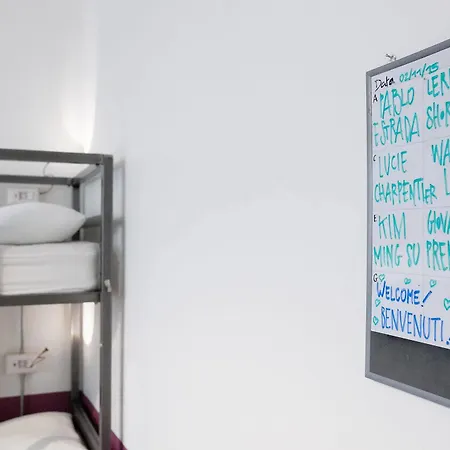 Data 02/11/15
A PABLO LER
ESTRADA SHOR
C LUCIE WA
CHARPENTIER L
E KIM GIOVA
MING SU PREI
G WELCOME!
BENVENUTI